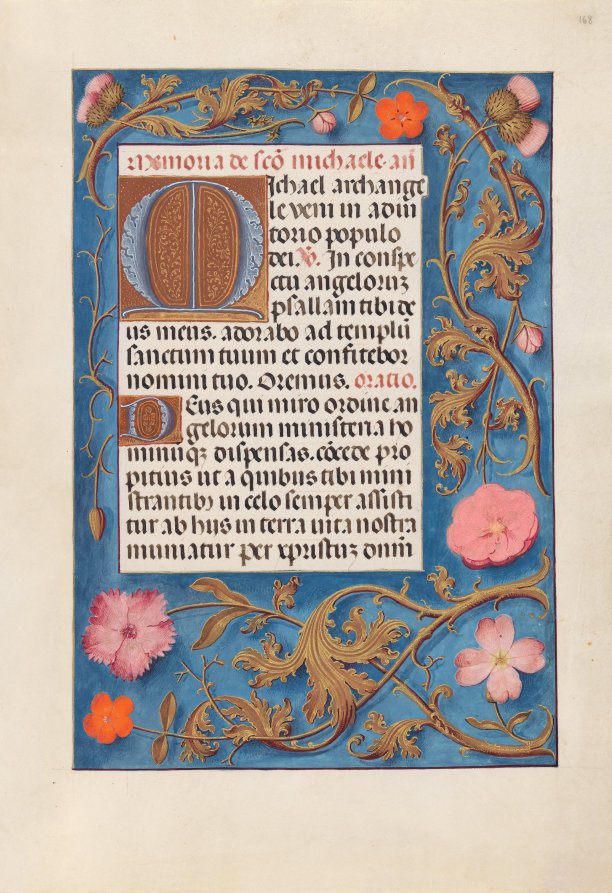 168
Memoria de sco michaele. añ
Michael archange
le veni in adiu
torio populo
dei. V. In conspe
ctu angelorum
psallam tibi de
us meus. adorabo ad templũ
sanctum tuum et confitebor
nomini tuo. Oremus. oratio.
Deus qui miro ordine an
gelorum ministeria ho
minũqꝫ dispensas. cõcede pro
pitius ut a quibus tibi mini
strantibꝫ in celo semper assisti
tur ab hijs in terra uita nostra
muniatur per xpristuꝫ dnm̃